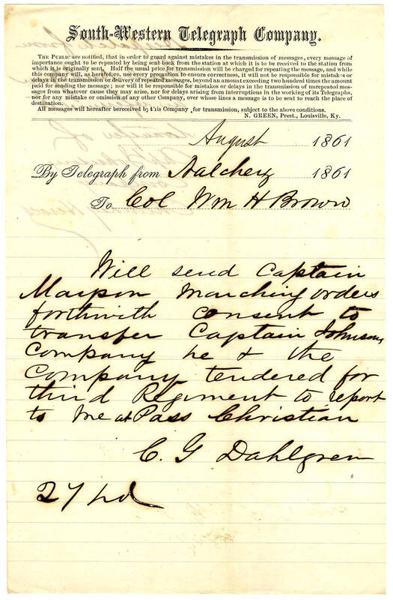 South-Western Telegraph Company.
THE PUBLIC are notified, that in order to guard against mistakes in the transmission of messages, every message of
importance ought to be repeated by being sent back from the station at which it is to be received to the station from
which it is originally sent. Half the usual price for transmission will be charged for repeating the message, and while
this company will, as heretofore, use every precaution to ensure correctness, it will not be responsible for mistakes or
delays in the transmission or delivery of repeated messages, beyond an amount exceeding two hundred times the amount
paid for sending the message; nor will it be responsible for mistakes or delays in the transmission of unrepeated messages
from whatever cause they may arise, nor for delays arising from interruptions in the working of its Telegraphs,
nor for any mistake or omission of any other Company, over whose lines a message is to be sent to reach the place of
destination.
All messages will hereafter be received by this Company for transmission, subject to the above conditions.
N. GREEN, Prest., Louisville, Ky.
August 1861
By Telegraph from Natchez 1861
To Col Wm H Brown
Will send Captain
Marching orders
forthwith consent to
transfer Captain Johnsons
Company he & the
Company tendered for
third Regiment to report
to me at Pass Christian
C. G Dahlgren
27